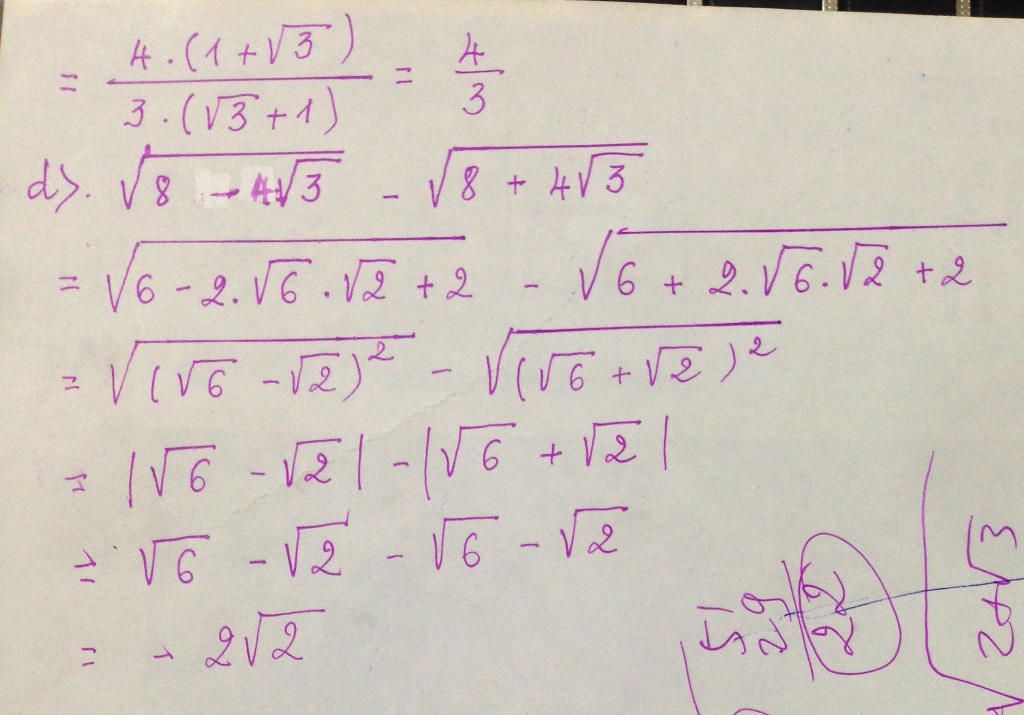 = 4.(1+√3) / 3.(√3+1) = 4/3
d>. √(8 - 4√3) - √(8 + 4√3)
= √(6 - 2.√6.√2 + 2) - √(6 + 2.√6.√2 + 2)
= √((√6 - √2)²) - √((√6 + √2)²)
= |√6 - √2| - |√6 + √2|
= √6 - √2 - √6 - √2
= - 2√2
22
2+√3